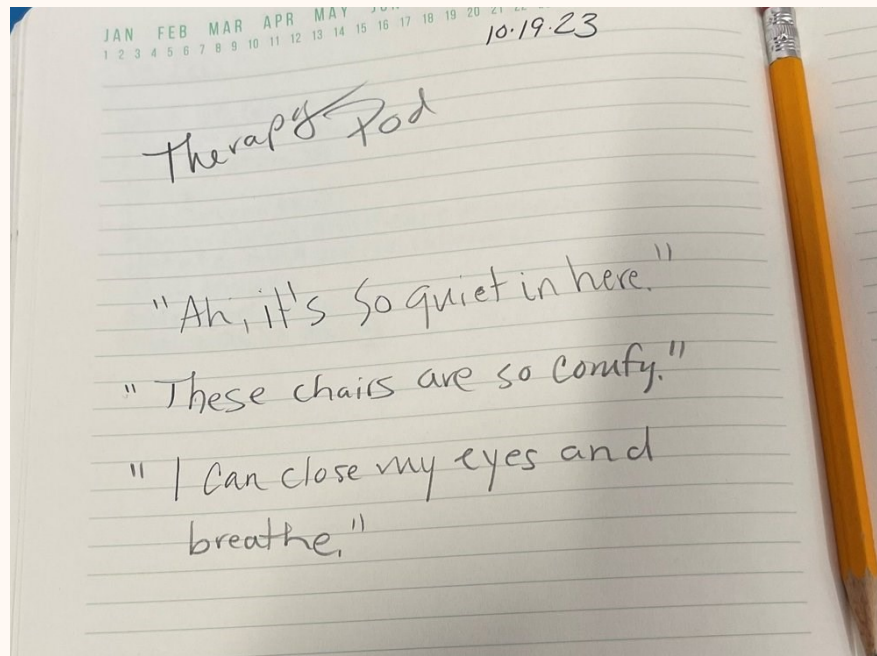 JAN FEB MAR APR MAY
1 2 3 4 5 6 7 8 9 10 11 12 13 14 15 16 17 18 19 20 21
10.19.23
Therapy Pod
"Ah, it's so quiet in here."
"These chairs are so comfy."
"I can close my eyes and
breathe."